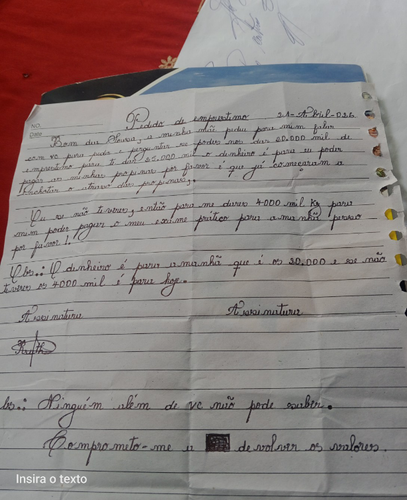 NO.
Date
Pedido de emprestimo 21-Abril-026
Bom dia a minha mãe pediu para mim falar
com vc para pedir e perguntar se poder nos dar 20.000 mil de
emprestimo para ti dar o dinheiro é para eu poder
pagar as minhas propinas por favor é que já começaram a
das propinas.
Eu se não tiveres, então para me dares 4000 mil Kz para
mim poder pagar o meu exame prático para amanhã
por favor!
Obs.: O dinheiro é para amanhã que é os 20.000 e se não
tiveres os 4000 mil é para hoje.
Assinatura Assinatura
bs.: Ninguém além de vc não pode saber.
Comprometo-me a devolver os valores.
Insira o texto